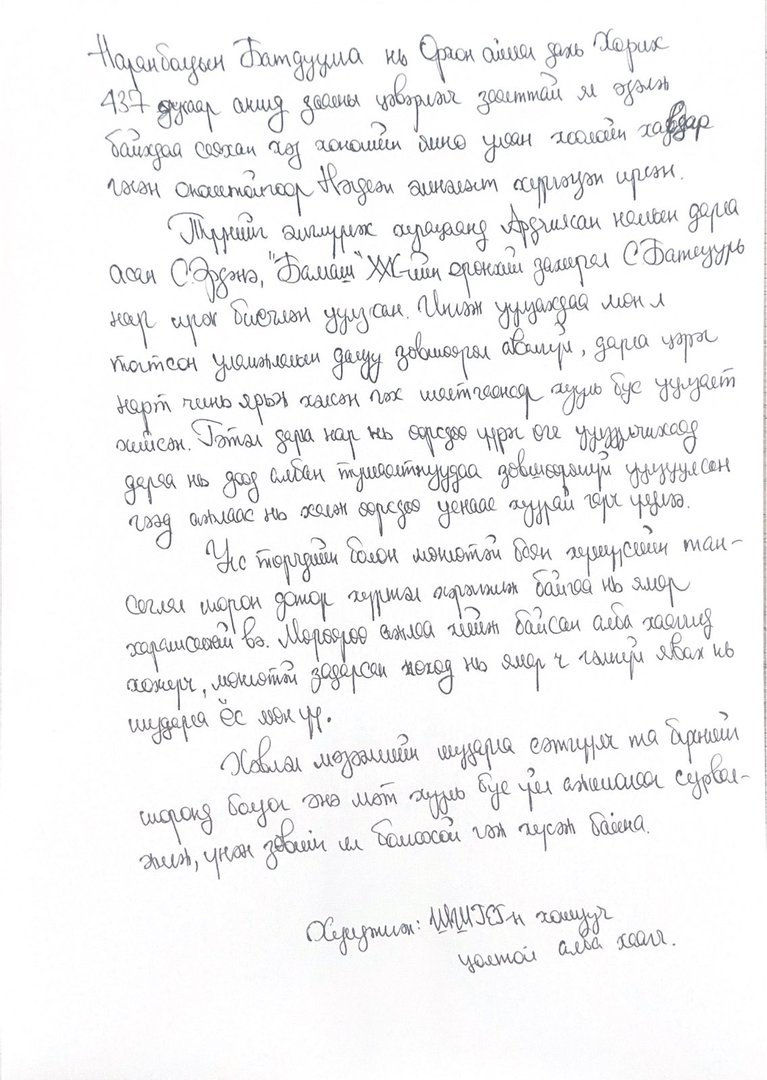 Наранбаатын Батдуулга нь Орхон аймаг дахь Хорих
437 дугаар ангид зааны цэвэрлэгч заалттай ял эдэлж
байхдаа саяхан хэд хоногийн өмнө улаан хоолойн хавдар
гэсэн оноштойгоор Нэгдсэн эмнэлэгт хүргэгдэн ирсэн.
Түүнийг эмчлүүлж хугацаанд Ардчилсан намын дарга
асан С.Эрдэнэ, "Бамаш" ХХК-ийн ерөнхий захирал С.Батцуурь
нар ирж бичлэн уулзсан. Ингэж уулзахдаа мөн л
тогтсон уламжлалын дагуу зөвшөөрөл авалгүй, дарга цэрэг
нарт чинь ярьж хэлсэн гэх шалтгаанаар хууль бус уулзалт
хийсэн. Гэтэл дарга нар нь өөрсдөө үүрэг өгч уулзуулчихаад
дараа нь доод албан тушаалтнуудаа зөвшөөрөлгүй уулзуулсан
гээд ажлаас нь халж өөрсдөө уснаас хуурай гарч үлдлээ.
Улс төрчдийн болон мөнгөтэй баян хүмүүсийн тан-
сагласан шорон дотор хүртэл хэрэгжиж байгаа нь ямар
харамсалтай вэ. Мөрөөрөө ажлаа хийж байсан алба хаагчид
хохирч, мөнгөтэй задарсан нөхөд нь ямар ч гэмгүй явах нь
шударга ёс мөн үү.
Хэвлэл мэдээллийн шударга сэтгүүлч та бүхнийг
шоронд болдог энэ мэт хууль бус үйл ажиллагааг сурвал-
жилж, үнэн зөвийг ил болгоосой гэж хүсэж байна.
Хүргүүлж: ШШГЕГ-н хошууч
цолтой алба хаагч.